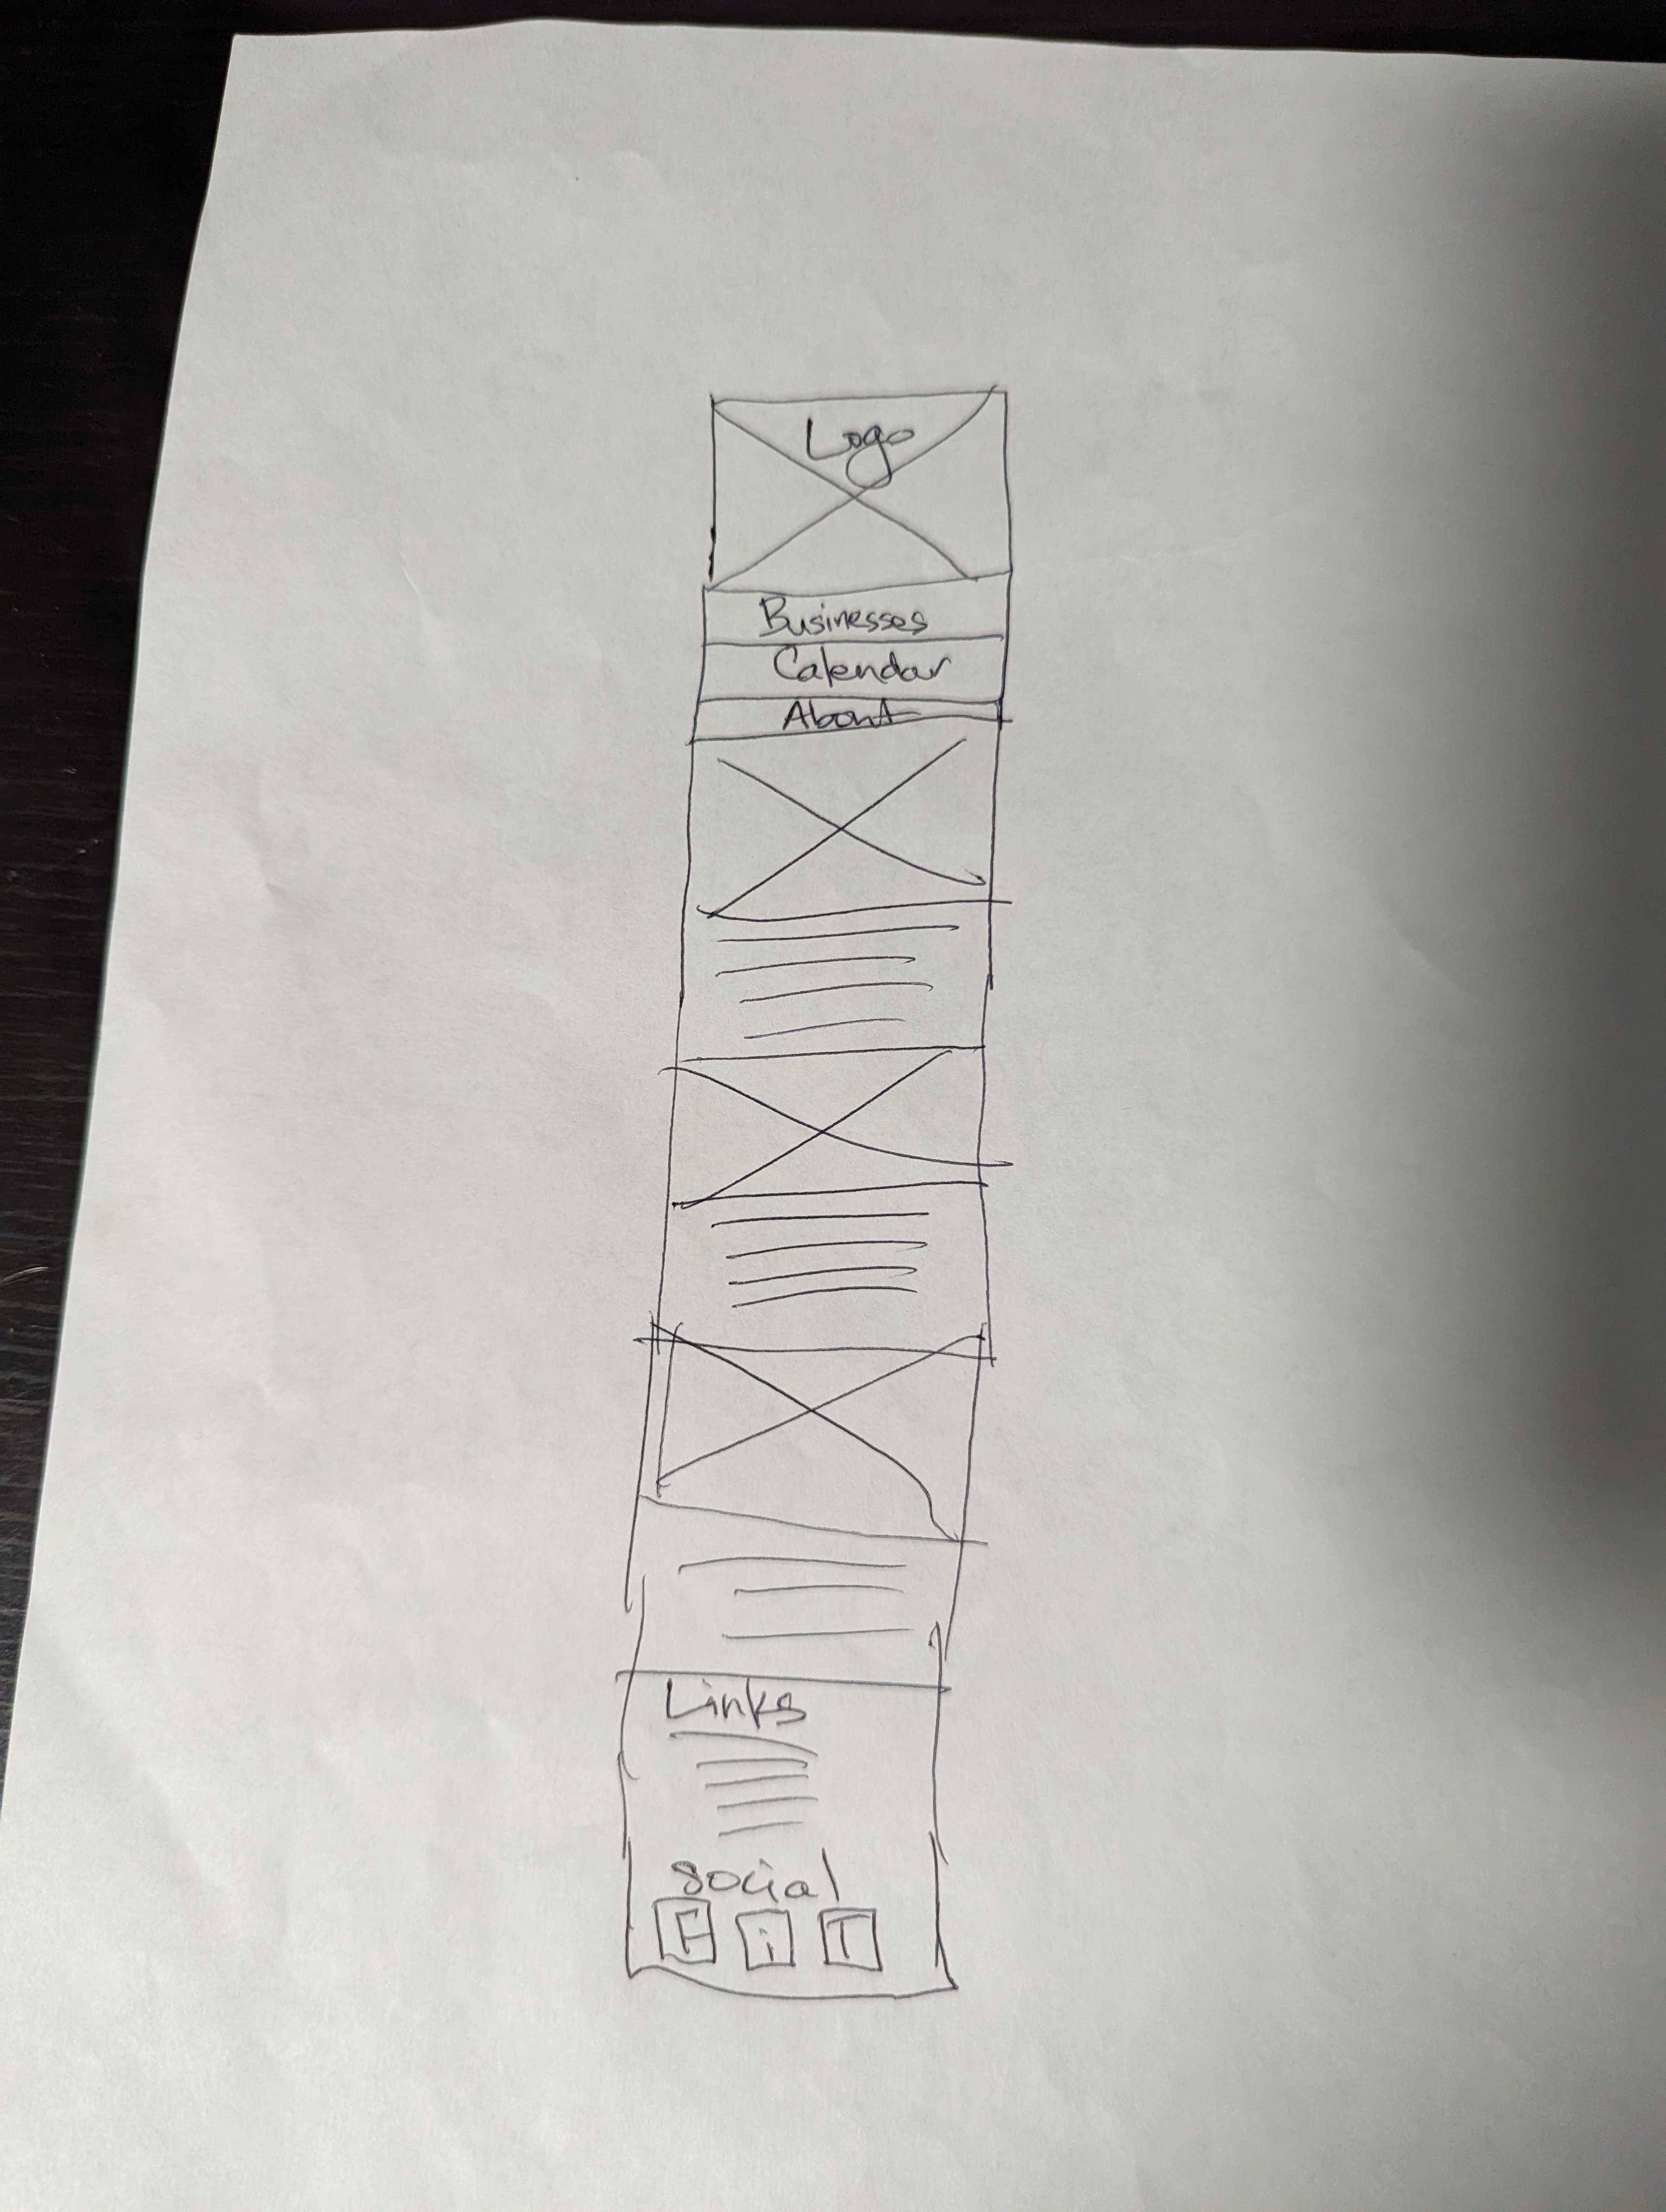 Logo
Businesses
Calendar
About
Links
Social
F i T